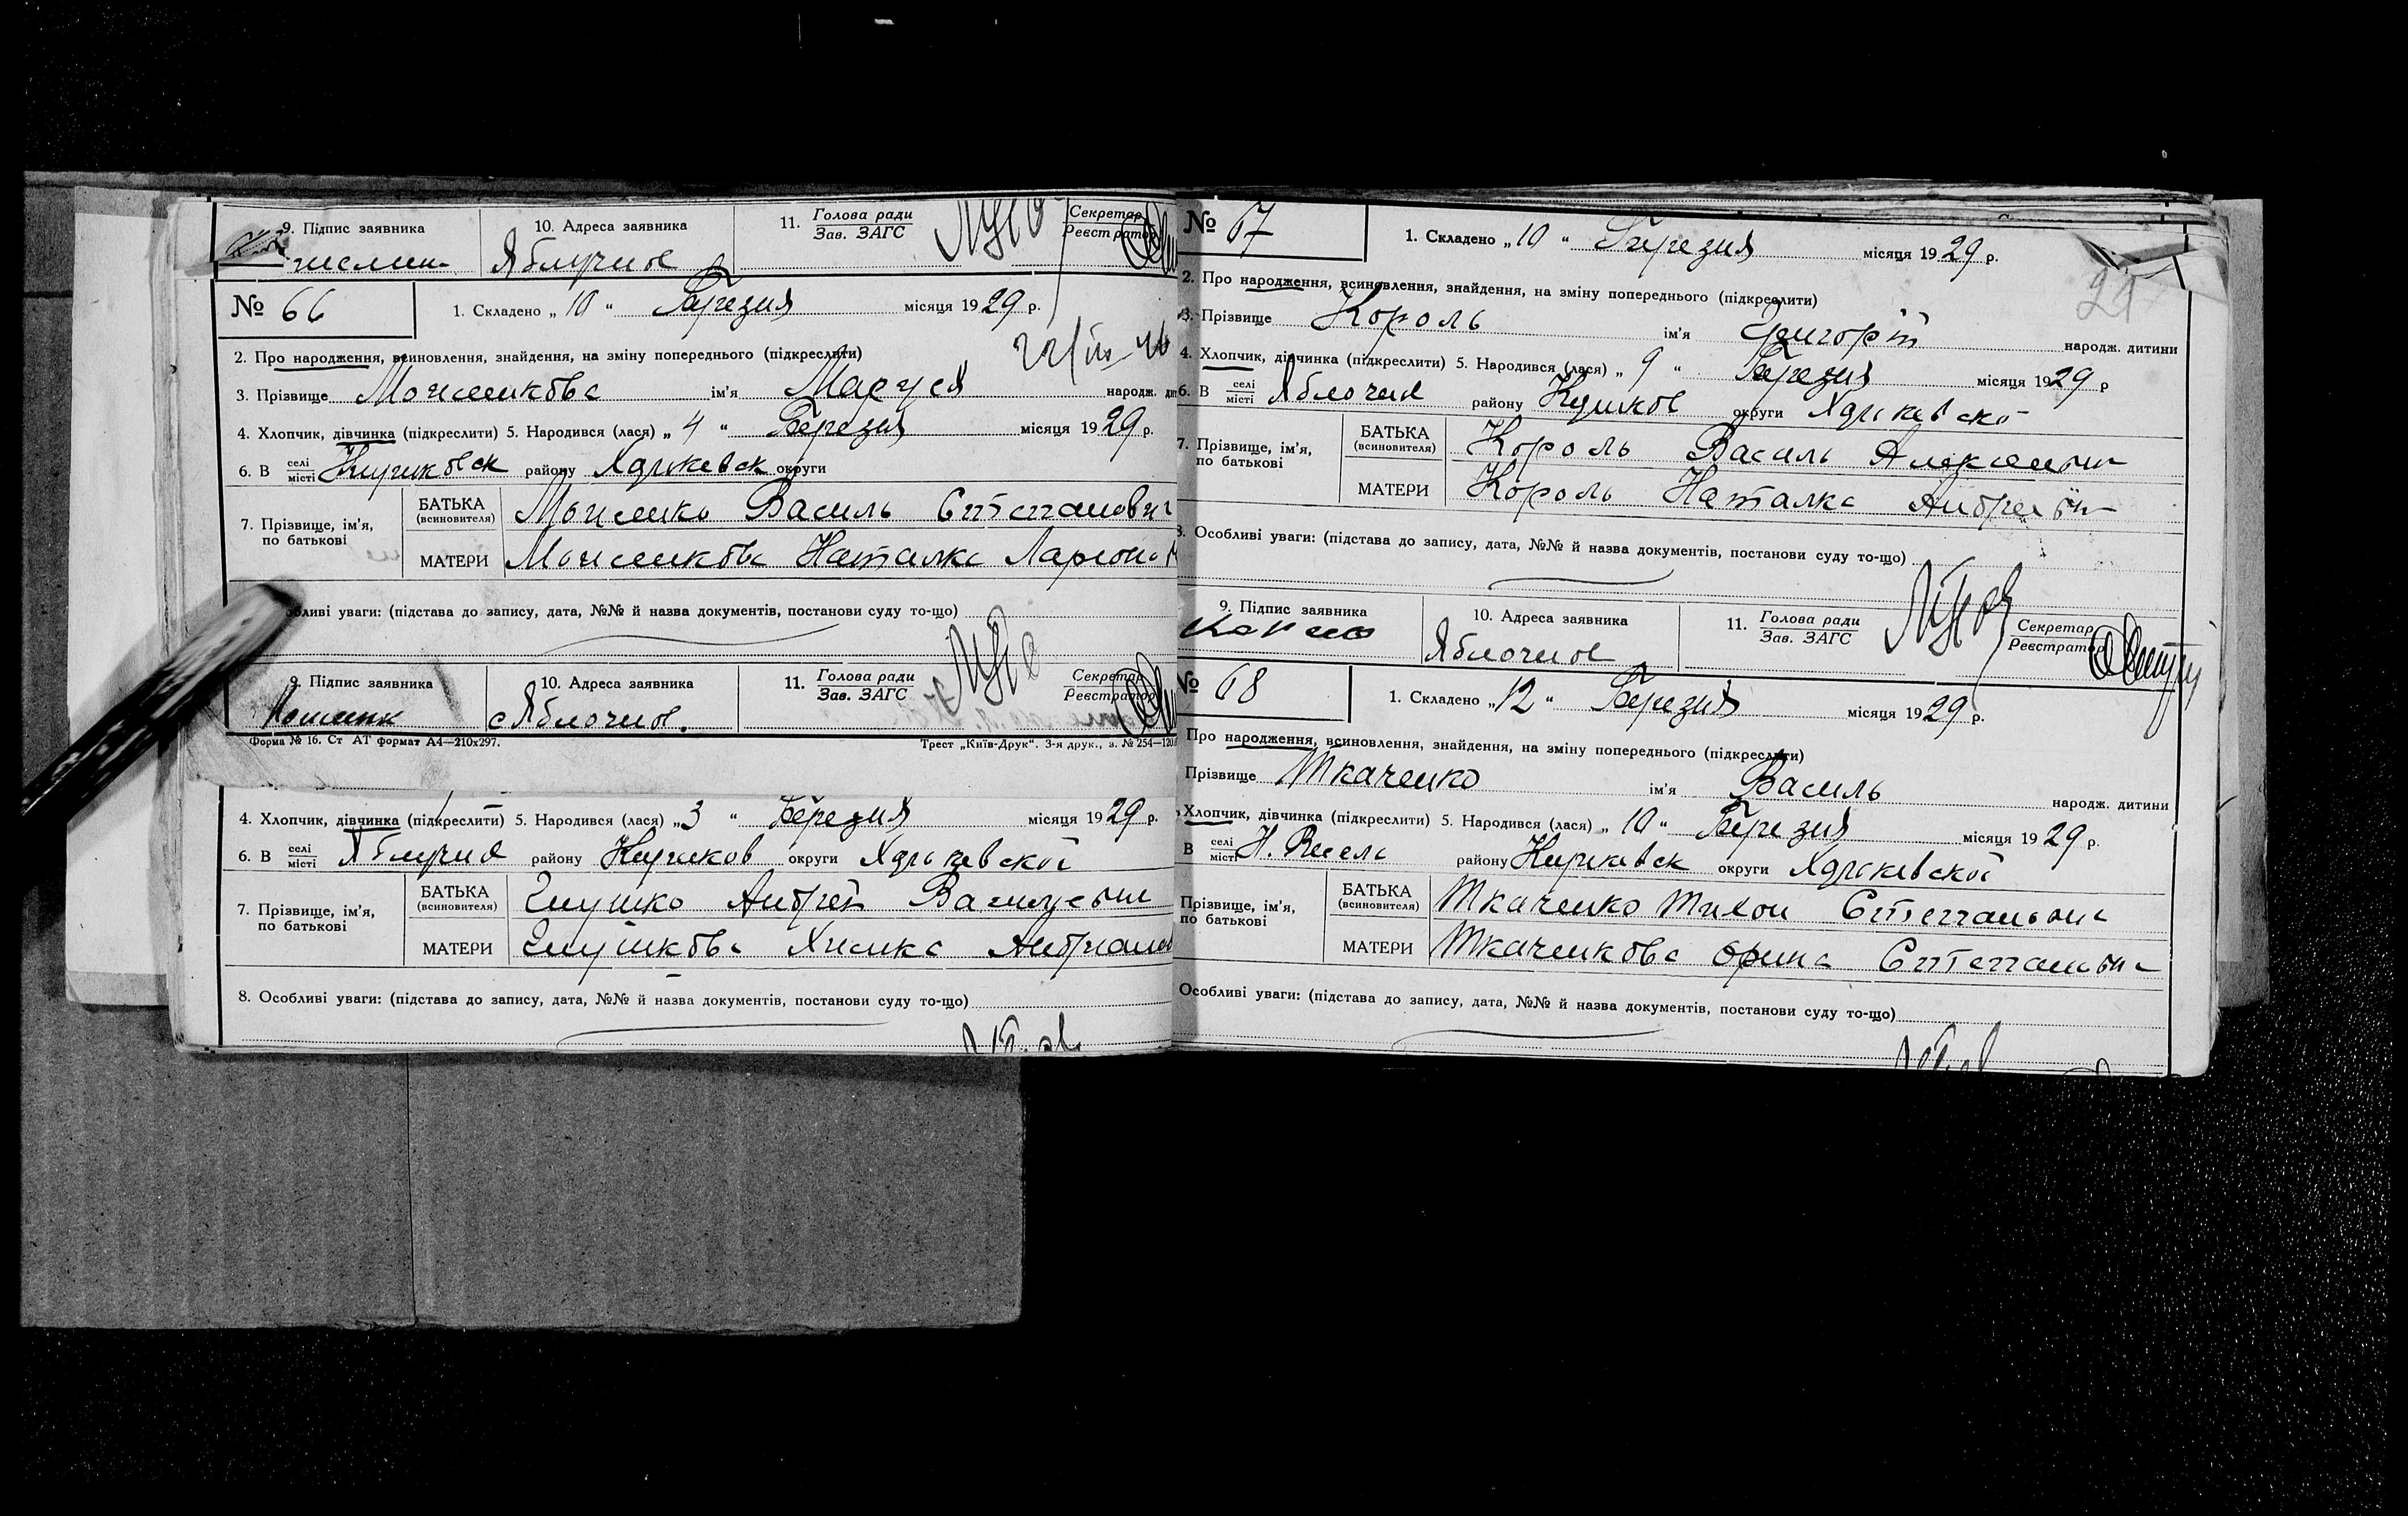 9. Підпис заявника 10. Адреса заявника 11. Голова ради Зав. ЗАГС Секретар Реєстратор
Яблучное
№ 66 1. Складено „10“ Березня місяця 1929 р.
2. Про народження, всиновлення, знайдення, на зміну попереднього (підкреслити)
3. Прізвище Моисеикова ім'я Маруся народж.
4. Хлопчик, дівчинка (підкреслити) 5. Народився (лася) „4“ Березня місяця 1929 р.
6. В селі місті Кириковск району Харькевск округи
7. Прізвище, ім'я, по батькові БАТЬКА (всиновителя) Моисеико Василь Степанович
МАТЕРИ Моисеикова Наталка
уваги: (підстава до запису, дата, №№ й назва документів, постанови суду то-що)
9. Підпис заявника 10. Адреса заявника 11. Голова ради Зав. ЗАГС Секретар Реєстратор
с Яблочное.
Форма № 16. Ст АТ формат А4—210x297. Трест „Київ-Друк“. 3-я друк., з. № 254—120
4. Хлопчик, дівчинка (підкреслити) 5. Народився (лася) „3“ Березня місяця 1929 р.
6. В селі місті Яблучна району Кириков округи Харькевской
7. Прізвище, ім'я, по батькові БАТЬКА (всиновителя) Глушко Андрей
МАТЕРИ Глушкова Химка
8. Особливі уваги: (підстава до запису, дата, №№ й назва документів, постанови суду то-що)
№ 67 1. Складено „10“ Березня місяця 1929 р.
29
2. Про народження, всиновлення, знайдення, на зміну попереднього (підкреслити)
3. Прізвище Король ім'я Григорій народж. дитини
4. Хлопчик, дівчинка (підкреслити) 5. Народився (лася) „9“ Березня місяця 1929 р
6. В селі місті Яблочна району округи Харкевскої
7. Прізвище, ім'я, по батькові БАТЬКА (всиновителя) Король Василь
МАТЕРИ Король Наталка
Особливі уваги: (підстава до запису, дата, №№ й назва документів, постанови суду то-що)
9. Підпис заявника 10. Адреса заявника 11. Голова ради Зав. ЗАГС Секретар Реєстратор
Яблочное
№ 68 1. Складено „12“ Березня місяця 1929 р.
Про народження, всиновлення, знайдення, на зміну попереднього (підкреслити)
Прізвище Ткаченко ім'я Василь народж. дитини
Хлопчик, дівчинка (підкреслити) 5. Народився (лася) „10“ Березня місяця 1929 р.
В селі місті району округи Харькевской
Прізвище, ім'я, по батькові БАТЬКА (всиновителя) Ткаченко Тихон
МАТЕРИ Ткаченкова
Особливі уваги: (підстава до запису, дата, №№ й назва документів, постанови суду то-що)